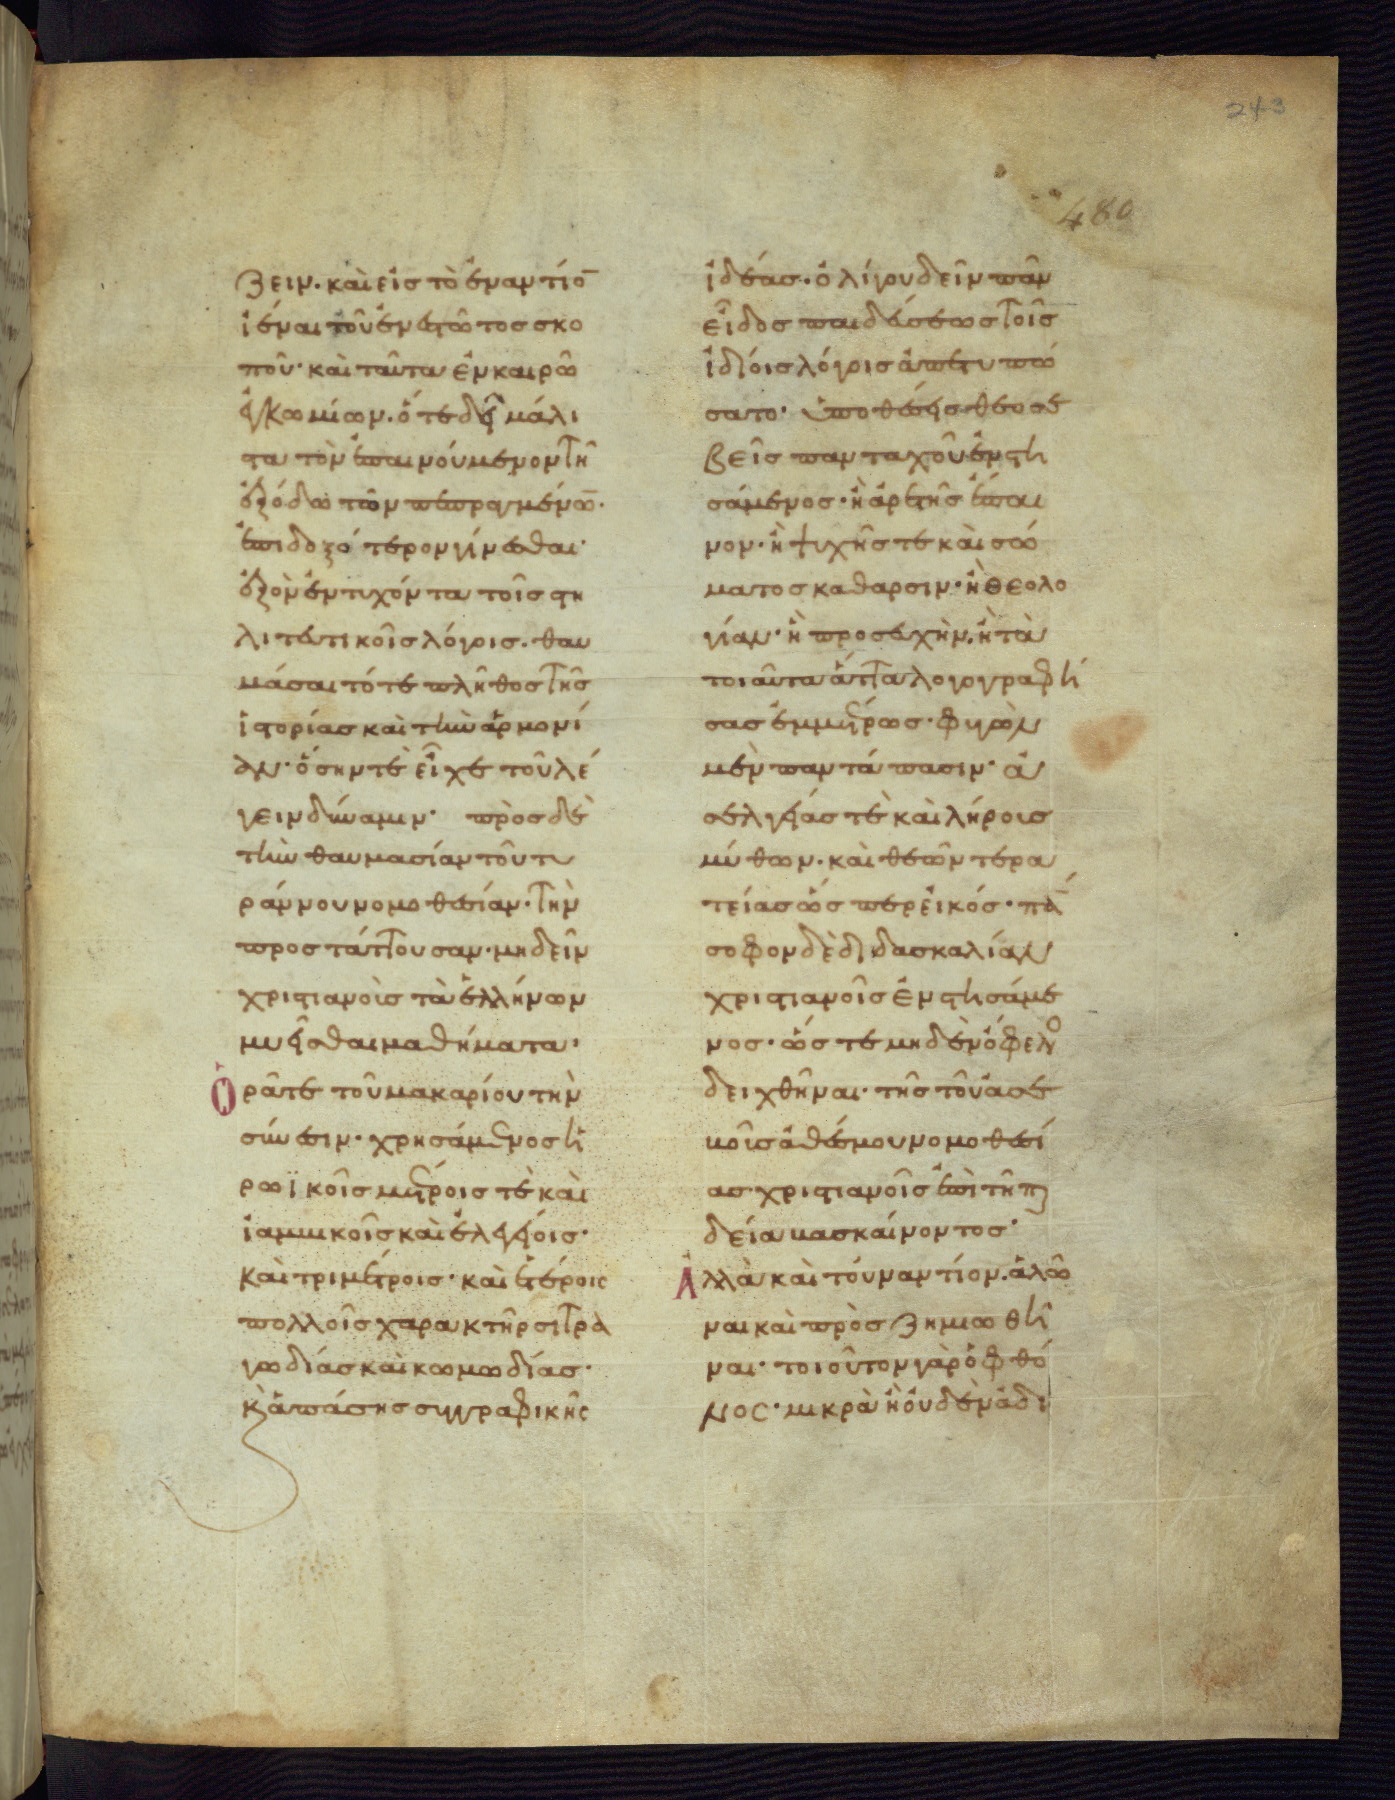 243
480
ζειν· καὶ εἰς τὸ ἐναντίο̄
ἰέναι τοῦ ἐνεστῶτος σκο
ποῦ· καὶ ταῦτα ἐν καιρῶ
ἐγκωμίων· ὅτε δεῖ μάλι
στα τὸν ἐπαινούμενον τῆ
ἐξόδω τῶν πεπραγμένω̄·
ἐπιδοξότερον γίνεσθαι·
ἐξὸν ἐντυχόντα τοῖς στη
λιτευτικοῖς λόγοις· θαυ
μάσαι τό τε πλῆθος τῆς
ἱστορίας καὶ τὴν ἁρμονί
αν· ὅσην τὲ εἶχε τοῦ λέ
γειν δύναμιν· πρὸς δὲ
τὴν θαυμασίαν τοῦ τυ
ράννου νομοθεσίαν· τὴν
προστάττουσαν· μὴ δεῖν
χριστιανοὶς τὰ ἑλλήνων
μυεῖσθαι μαθήματα·
Ὁρᾶτε τοῦ μακαρίου τὴν
σύνεσιν· χρησάμενος ἡ
ρωϊκοῖς μέτροις τὲ καὶ
ἰαμβικοῖς καὶ ἐλεγείοις·
καὶ τριμέτροις· καὶ ἑτέροις
πολλοῖς χαρακτῆρσι τρα
γωδίας καὶ κωμωδίας·
κὰ ἁπάσης συγγραφικῆς
ἰδέας· ὀλίγου δεῖν πᾶν
εἶδος παιδεύσεως τοῖς
ἰδίοις λόγοις ἀπετυπώ
σατο· ὑποθέσεις θεοσε
βεῖς πανταχοῦ ἐνστη
σάμενος· ἢ ἀρετῆς ἔπαι
νον· ἢ ψυχῆς τε καὶ σώ
ματος κάθαρσιν· ἢ θεολο
γίαν· ἢ προσευχὴν· ἢ τὰ
τοιαῦτα ἄττα λογογραφή
σας ἐμμέτρως· φυγὼν
μὲν παντάπασιν· ἀ
σελγείας τὲ καὶ λήροις
μύθων· καὶ θεῶν τερα
τείας ὥσπερ εἰκός· πά
σοφον δὲ διδασκαλίαν
χριστιανοῖς ἐνστησάμε
νος· ὥστε μηδὲν ὄφελο
δειχθῆναι· τῆς τοῦ ἀσε
βοῖς ἀθέσμου νομοθεσί
ας χριστιανοῖς ἐπὶ τῆ π
δεία βασκαίνοντος·
Ἀλλὰ καὶ τοὐναντίον· ἁλῶ
ναι καὶ πρὸς ζημιωθῆ
ναι· τοιοῦτον γὰρ ὁ φθό
νος· μικρὰ ἢ οὐδὲν ἀδι